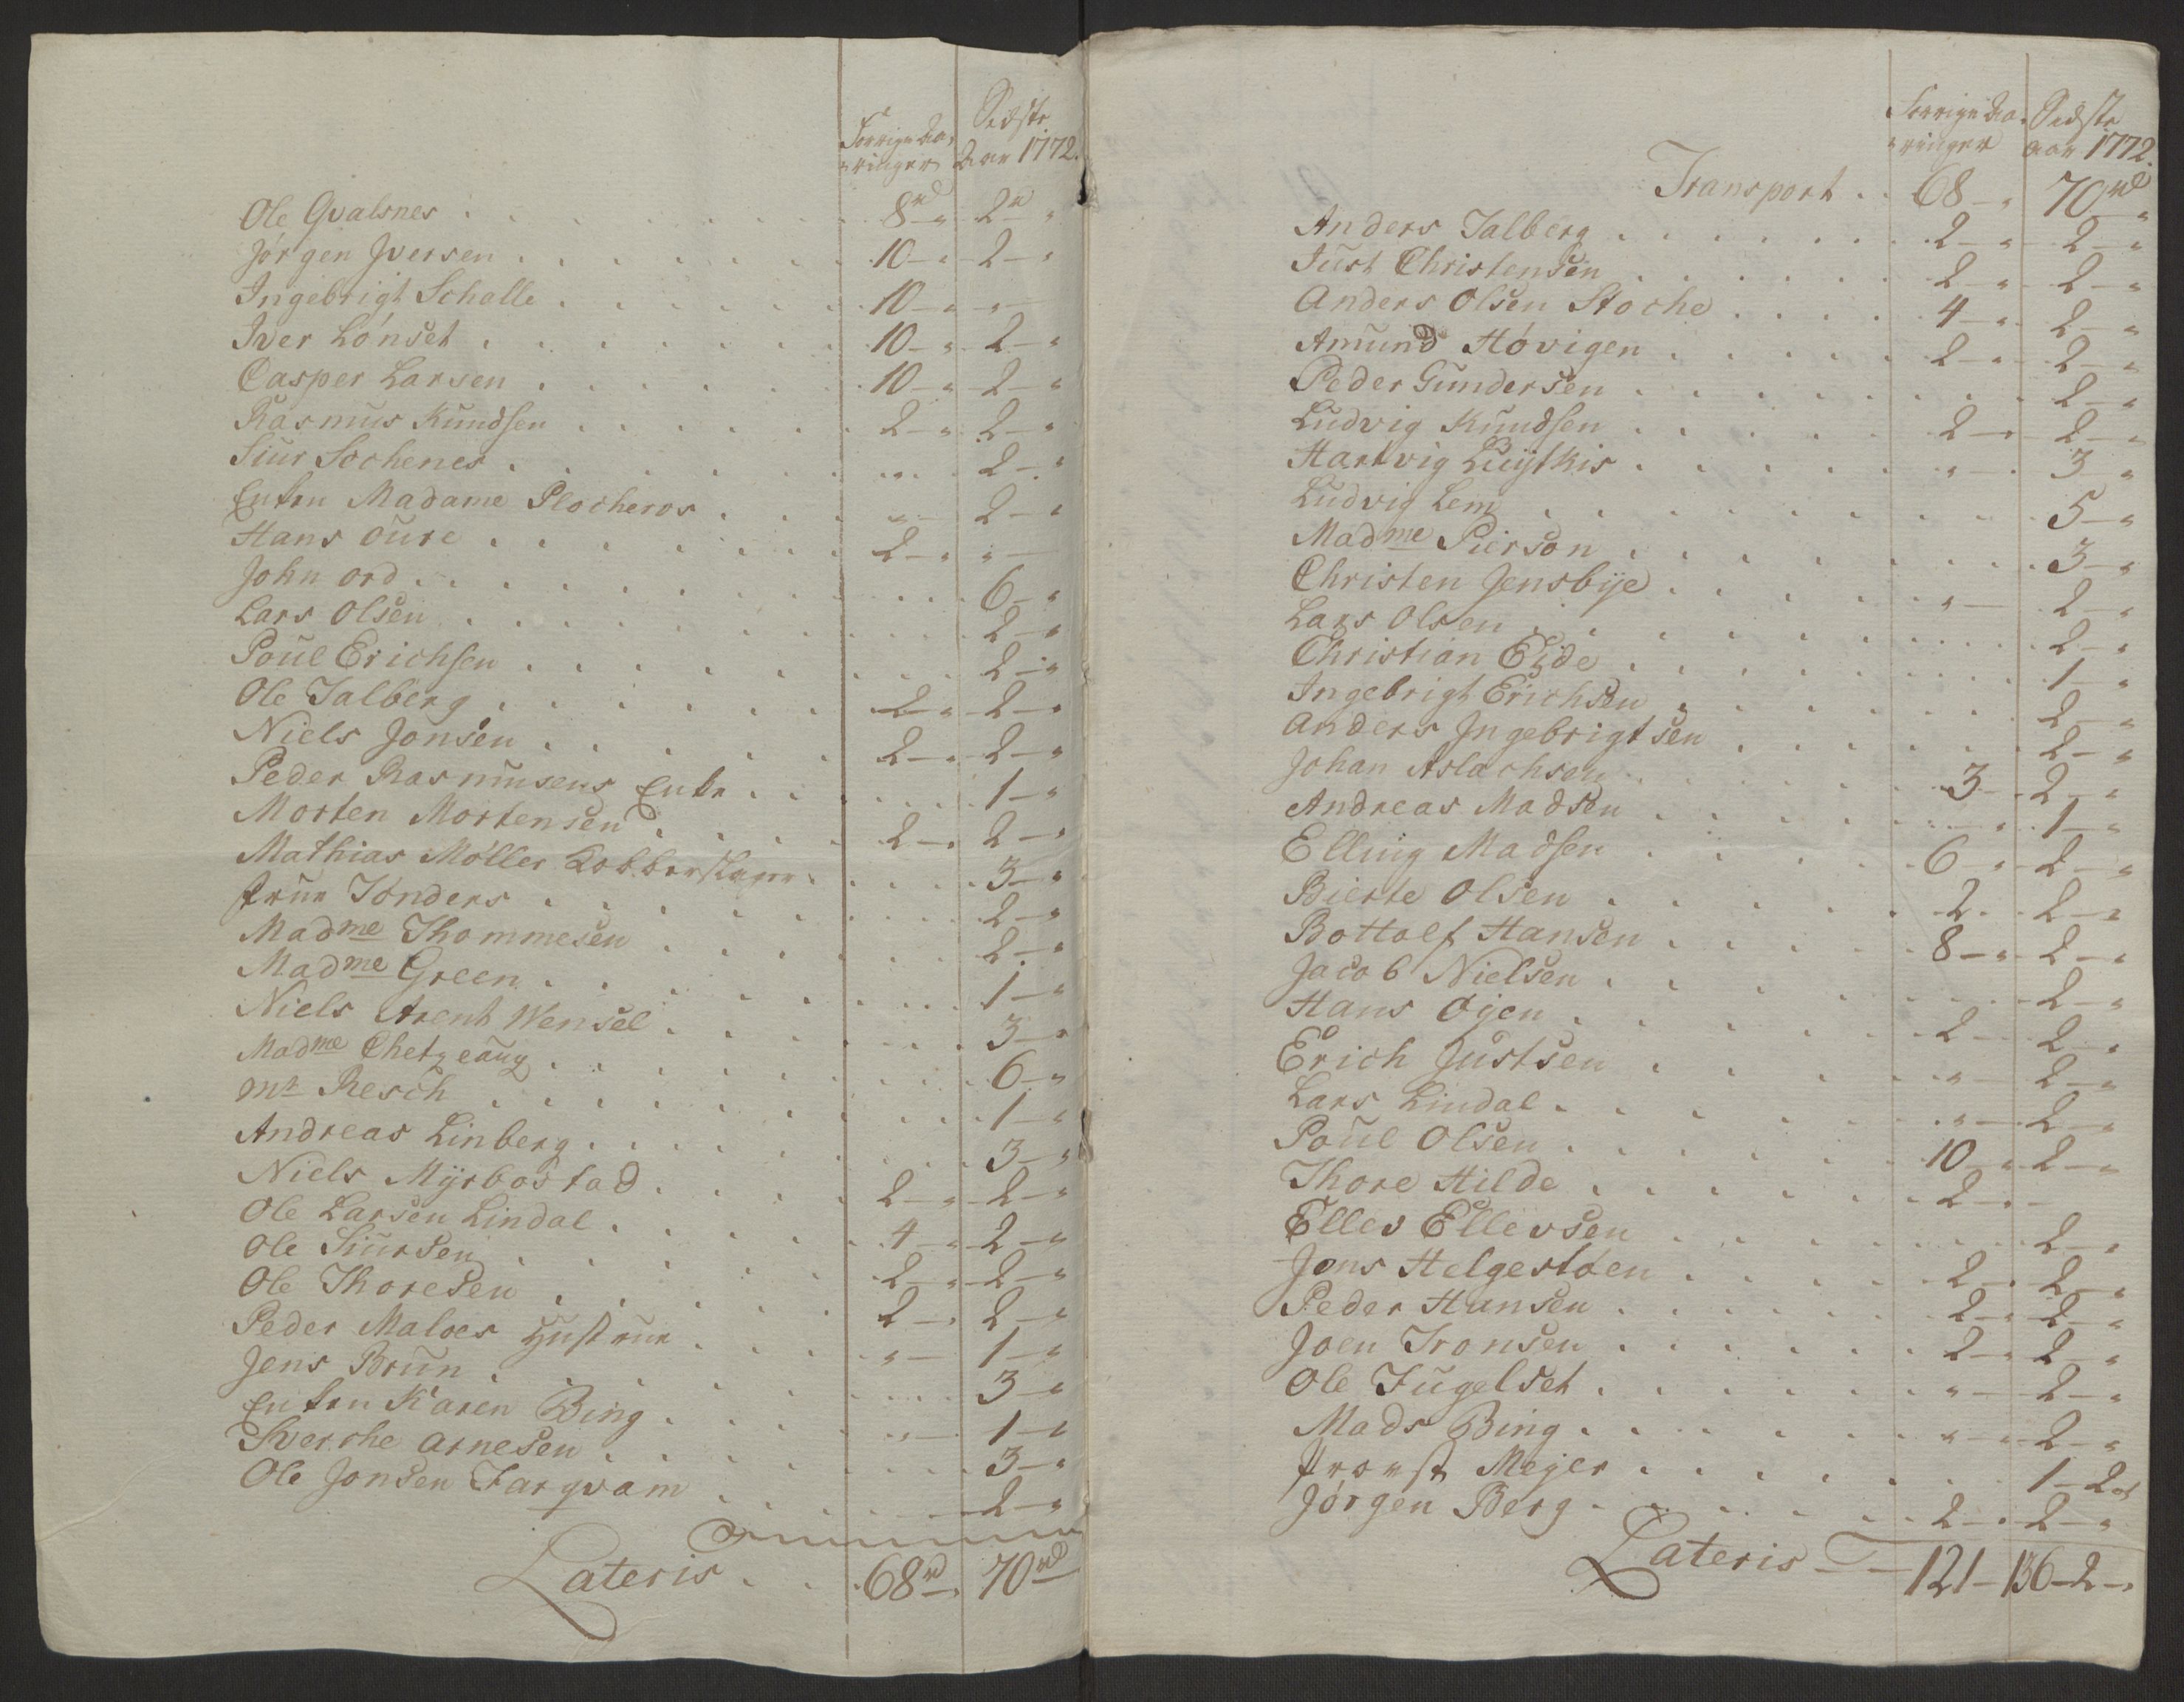 Forrige Aa- Sidste
ringer Aar 1772.
Ole Qvalsnes . . . 8 rd - " 2 rd "
Jörgen Jversen . . . 10 - " 2 - "
Ingebrigt Schalle . . . 10 - " " -
Iver Lönset . . . 10 - " 2 - "
Casper Larsen . . . 10 - " 2 - "
Rasmus Knudsen . . . 2 - " 2 - "
Siur Sochenes . . . " " 2 - "
Enken Madame Plocheros . . . " - 2 - "
Hans Oure . . . 2 - " " -
John ord . . . 6 - "
Lars Olsen . . . 2 - "
Poul Erichsen . . . 2 - "
Ole Talberg . . . 2 - " 2 - "
Niels Jonsen . . . 2 - " 2 - "
Peder Rasmusens Enke . . . 1 - "
Morten Mortensen . . . 2 - " 2 - "
Mathias Möller Kobberslager . . . 3 - "
Frue Tönders . . . 2 - "
Madme Thommesen . . . 2 - "
Madme Green . . . 1 - "
Niels Arent Wensel . . . 3 - "
Madme Chetzeaug . . . 6 - "
Mr Resch . . . 1 - "
Andreas Linberg . . . 3 - "
Niels Myrbostad . . . 2 - " 2 - "
Ole Larsen Lindal . . . 4 - " 2 - "
Ole Siursen . . . 2 - " 2 - "
Ole Thoresen . . . 2 - " 2 - "
Peder Maloes Hustrue . . . " - 1 - "
Jens Brun . . . 3 - "
Enken Karen Bing . . . " - 1 - "
Sverche Arnesen . . . 3 - "
Ole Jonsen Farqvam . . . 2 - "
Lateris . . . 68 rd - " 70 rd
Forrige Aa- Sidste
ringer Aar 1772.
Transport . . 68 - " 70 rd "
Anders Talberg . . . 2 - " 2 - "
Just Christensen . . . 2 - " 2 - "
Anders Olsen Stoche . . . 4 - " 2 - "
Amund Hövigen . . . 2 - " 2 - "
Peder Gundersen . . . 2 - "
Ludvig Knudsen . . . 2 - " 2 - "
Hartvig Luytkis . . . " - 3 "
Ludvig Lem . . . 5 - "
Madme Pierson . . . 3 - "
Christen Jensbye . . . " - 2 - "
Lars Olsen . . . 2 - "
Christian Eide . . . 1 - "
Ingebrigt Erichsen . . . 2 - "
Anders Jngebrigtsen . . . 2 - "
Johan Aslachsen . . . 3 - 2 - "
Andreas Madsen . . . 1 - "
Elling Madsen . . . 6 - " 2 - "
Bierte Olsen . . . 2 . 2 - "
Bottolf Hansen . . . 8 - " 2 - "
Jacob Nielsen . . . 2 - "
Hans Öyen . . . 2 - 2 - "
Erich Justsen . . . " - 2 - "
Lars Lindal . . . " - 2 - "
Poul Olsen . . . 10 - " 2 - "
Thore Hilde . . . 2 - " -
Ellev Ellevsen . . . 2 - "
Jens Helgestöen . . . 2 - " 2 - "
Peder Hansen . . . 2 - " 2 - "
Joen Tronsen . . . 2 - " 2 - "
Ole Fugelset . . . " - 2 - "
Mads Bing . . . " - " 2 - "
Provst Meyer . . . 1 - 2 "
Jörgen Berg . . . 2 - " 2 - "
Lateris - 121 - 136 - 2 - "